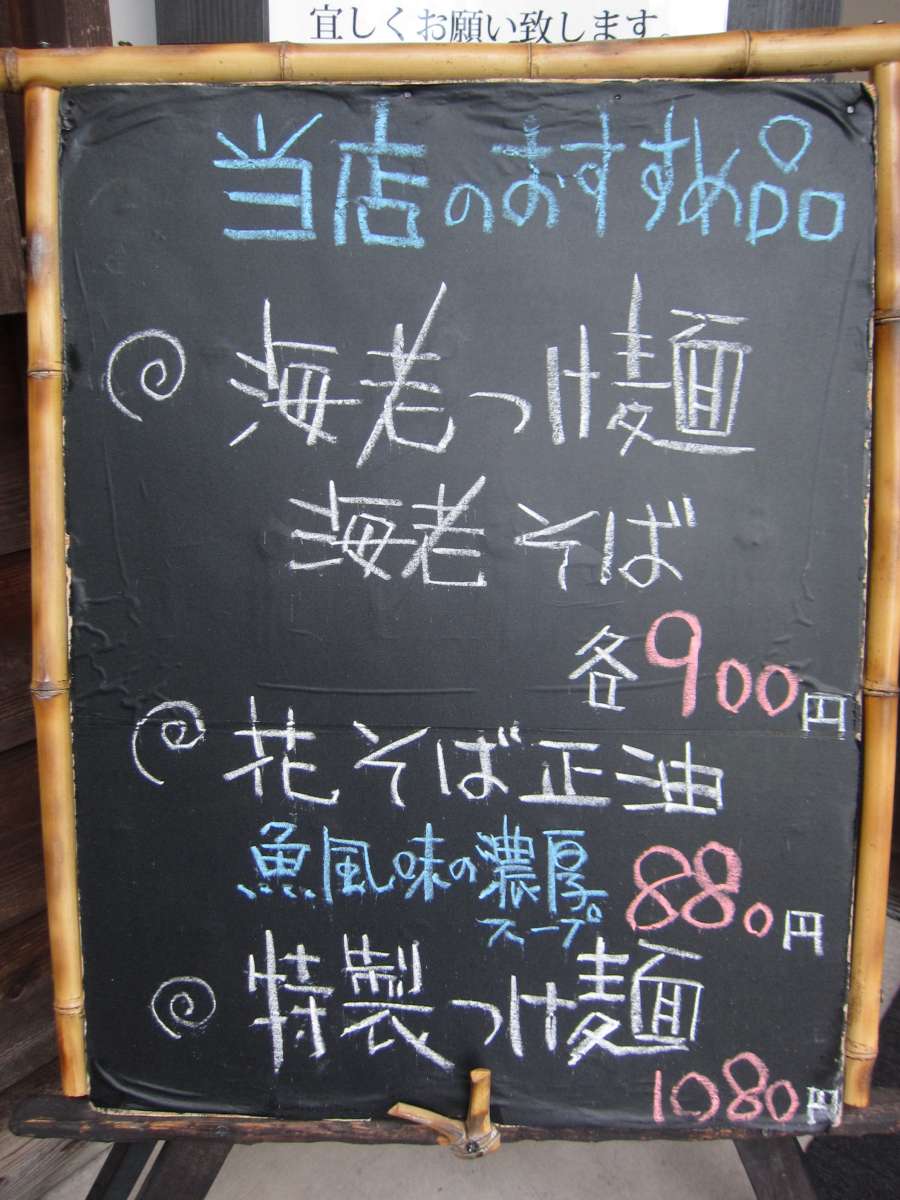 宜しくお願い致します。
当店のおすすめ品
海老つけ麺
海老そば
各900円
花そば正油
魚風味の濃厚
スープ
880円
特製つけ麺
1080円